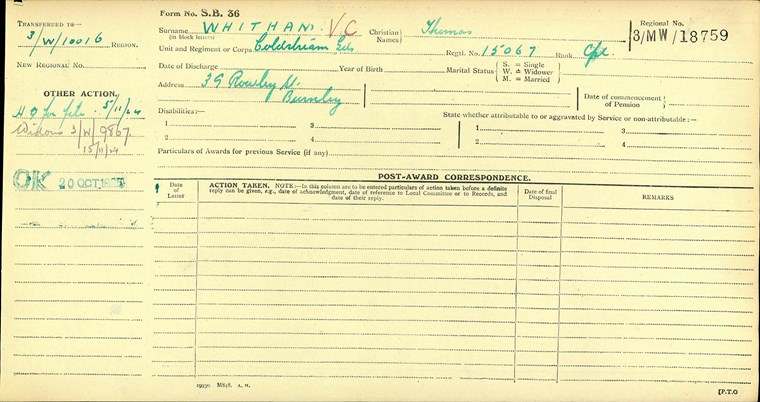 Form No. S.B. 36
TRANSFERRED TO—
3/W/10016 REGION.
NEW REGIONAL NO.
Surname WHITHAM VC
(in block letters)
Christian Names} Thomas
Regional No.
3/MW/18759
Unit and Regiment or Corps Coldstream Gds Regtl. No. 15067 Rank Cpl
Date of Discharge Year of Birth Marital Status { S. = Single
W. = Widower
M. = Married
Address 39 Rowley St.
Burnley
Date of commencement of Pension }
OTHER ACTION.
5/11/24
Widows 3/W/9867
15/11/24
OK 20 OCT
Disabilities:—
1 3
2 4
State whether attributable to or aggravated by Service or non-attributable:—
1 3
2 4
Particulars of Awards for previous Service (if any)
POST-AWARD CORRESPONDENCE.
Date of Letter
ACTION TAKEN. NOTE:—In this column are to be entered particulars of action taken before a definite
reply can be given, e.g., date of acknowledgment, date of reference to Local Committee or to Records, and
date of their reply.
Date of final Disposal
REMARKS
[P.T.O